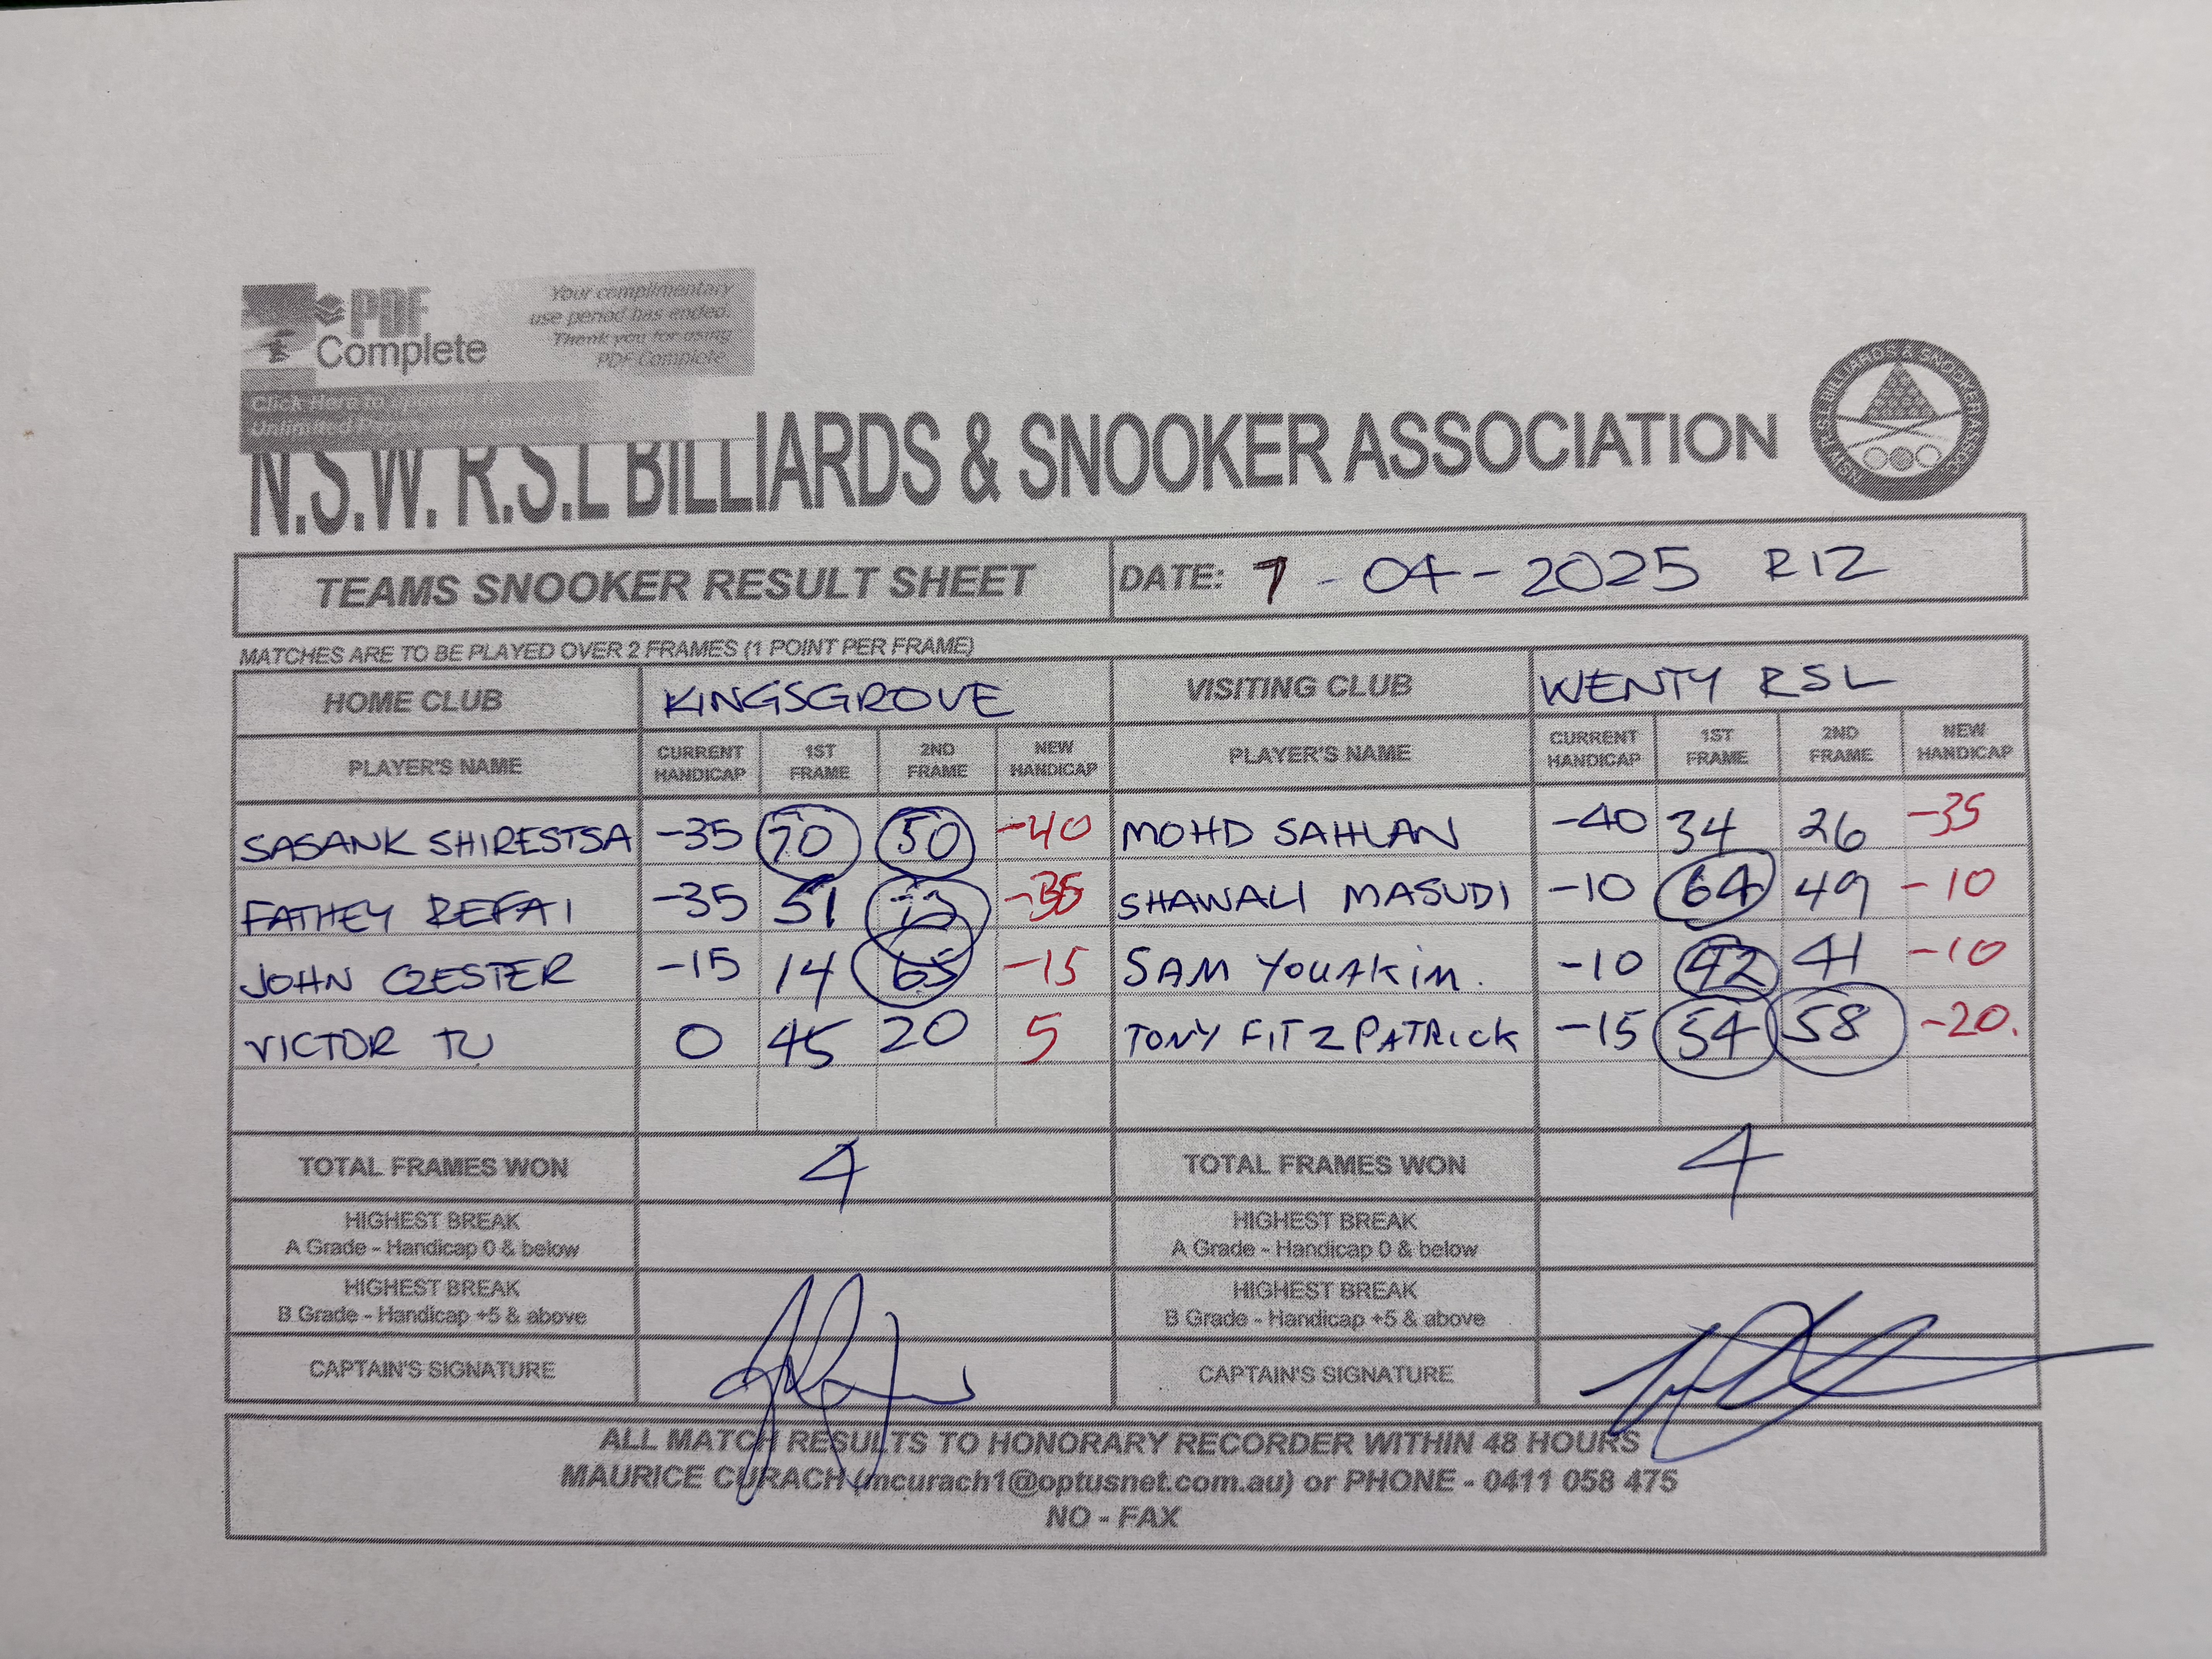 PDF
Complete
Your complimentary
use period has ended.
Thank you for using
PDF Complete.
Click Here to upgrade to
Unlimited Pages and Expanded
N.S.W. R.S.L BILLIARDS & SNOOKER ASSOCIATION
NSW R.S.L BILLIARDS & SNOOKER ASSOC
TEAMS SNOOKER RESULT SHEET DATE: 7-04-2025 R12
MATCHES ARE TO BE PLAYED OVER 2 FRAMES (1 POINT PER FRAME)
HOME CLUB KINGSGROVE VISITING CLUB WENTY RSL
PLAYER'S NAME CURRENT HANDICAP 1ST FRAME 2ND FRAME NEW HANDICAP PLAYER'S NAME CURRENT HANDICAP 1ST FRAME 2ND FRAME NEW HANDICAP
SASANK SHIRESTSA -35 70 50 -40 MOHD SAHLAN -40 34 26 -35
FATHEY REFAI -35 51 SHAWALI MASUDI -10 64 49 -10
JOHN -15 14 65 -15 SAM YOUAKIM. -10 42 41 -10
VICTOR TU 0 45 20 5 TONY FITZPATRICK -15 54 58 -20.
TOTAL FRAMES WON 4 TOTAL FRAMES WON 4
HIGHEST BREAK HIGHEST BREAK
A Grade - Handicap 0 & below A Grade - Handicap 0 & below
HIGHEST BREAK HIGHEST BREAK
B Grade - Handicap +5 & above B Grade - Handicap +5 & above
CAPTAIN'S SIGNATURE CAPTAIN'S SIGNATURE
ALL MATCH RESULTS TO HONORARY RECORDER WITHIN 48 HOURS
MAURICE CURACH (mcurach1@optusnet.com.au) or PHONE - 0411 058 475
NO - FAX